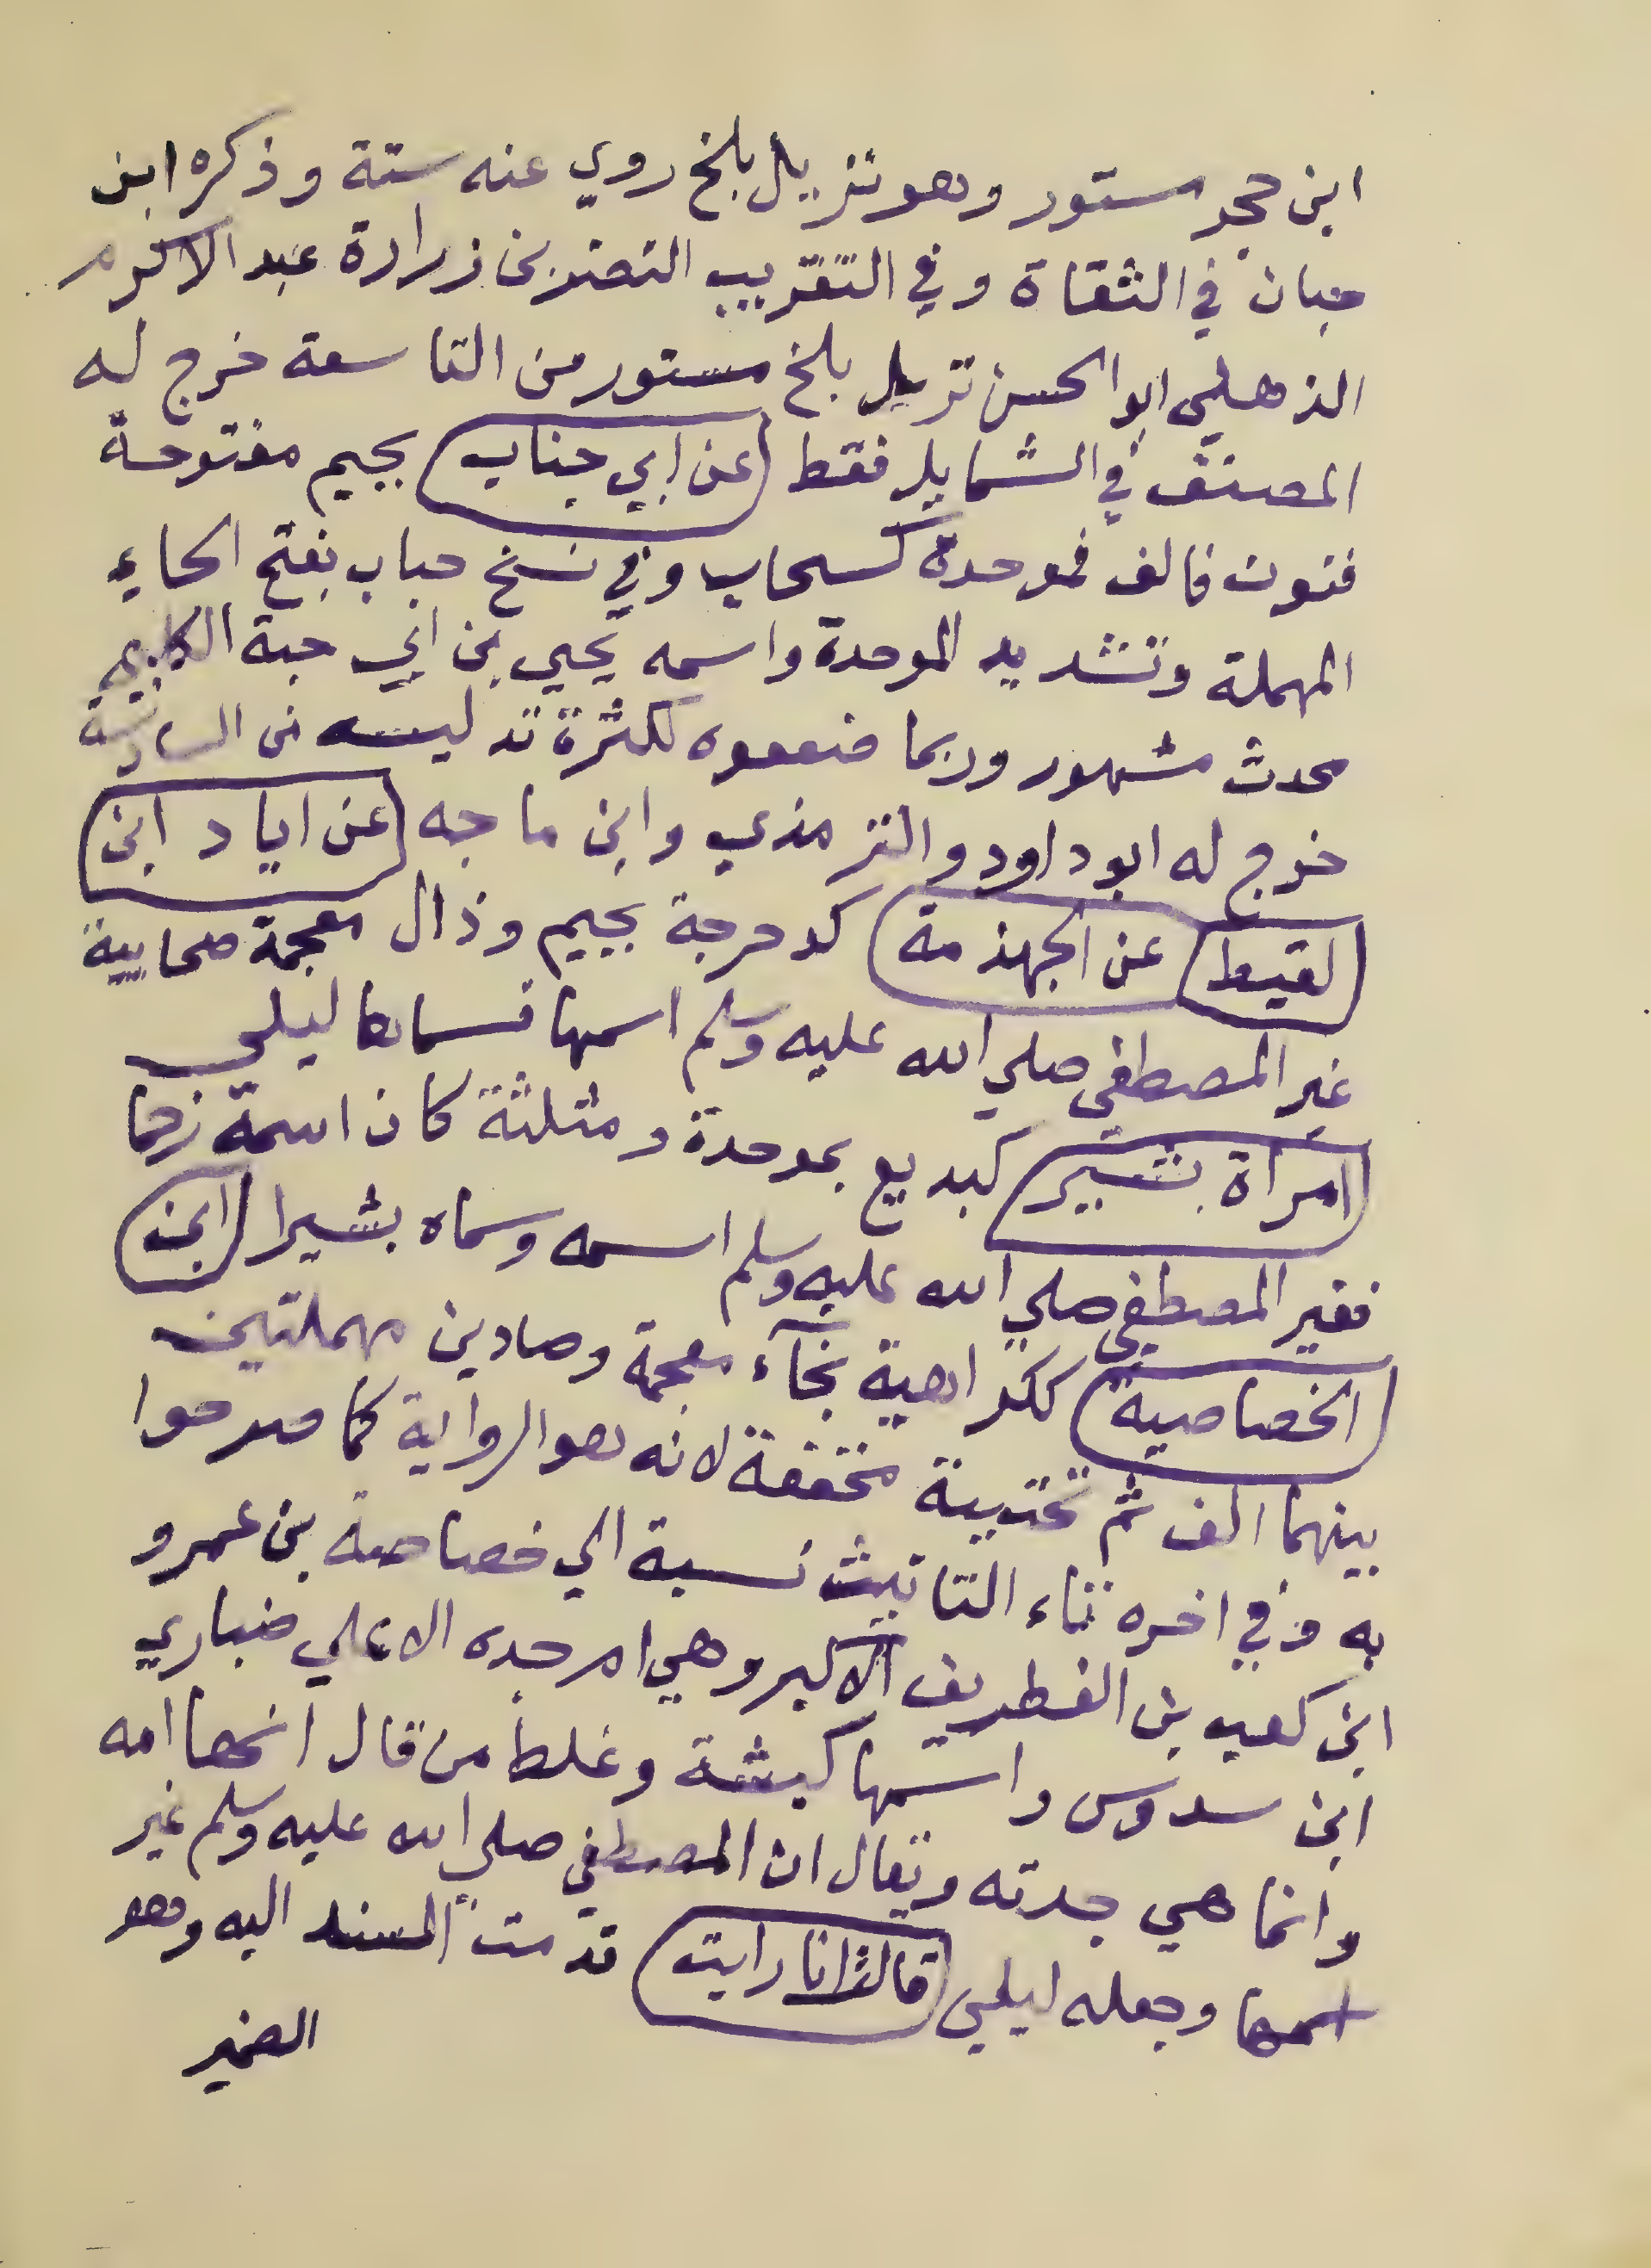 ابن حجر مستور وهو نزيل بلخ روي عنه ستة وذكره ابن
حبان في الثقاة وفي التقريب النضر بن زرارة عبد الاكرم
الذهلي ابو الحسن نزيل بلخ مستور من التاسعة خرج له
المصنف في الشمايل فقط عن ابي جناب بجيم مفتوحة
فنون فالف فموحدة كسحاب وفي نسخ حباب بفتح الحاء
المهملة وتشديد الموحدة واسمه يحيي بن ابي حية الكلبي
محدث مشهور وربما ضعفوه لكثرة تدليسه من السادسة
خرج له ابو داود والترمذي وابن ماجه عن اياد ابن
لقيط عن الجهذمة كدحرجة بجيم وذال معجمة صحابية
غير المصطفي صلي الله عليه وسلم اسمها فسماها ليلي
امراة بشير كبديع بموحدة ومثلثة كان اسمه زحما
فغير المصطفي صلي الله عليه وسلم اسمه وسماه بشيرا ابن
الخصاصية ككراهية بخآء معجمة وصادين مهملتين
بينهما الف ثم تحتيية مخففة لانه هو الرواية كما صرحوا
به وفي اخره تاء التانيث نسبة الي خصاصة بن عمرو
ابن كعب بن الغطريف الاكبر وهي ام جده الاعلي ضباري
ابن سدوس واسمها كبشة وغلط من قال انها امه
وانما هي جدته ويقال ان المصطفي صلي الله عليه وسلم غير
اسمها وجعله ليلي قالت انا رايت قدمت المسند اليه وهو
الضمير